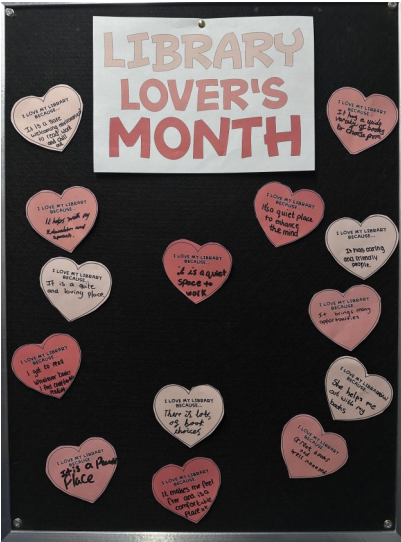 LIBRARY
LOVER'S
MONTH
I LOVE MY LIBRARY
BECAUSE...
It is a safe
welcoming environment
to read work
and chill
out
I LOVE MY LIBRARY
BECAUSE...
It has a wide
variety of books
to choose from
I LOVE MY LIBRARY
BECAUSE...
It helps with my
Education and
I LOVE MY LIBRARY
BECAUSE...
quiet place
to enhance
the mind
I LOVE MY LIBRARY
BECAUSE...
It has caring
and friendly
people.
I LOVE MY LIBRARY
BECAUSE...
it is a quiet
space to
work
I LOVE MY LIBRARY
BECAUSE...
It is a quite
and loving place
I LOVE MY LIBRARY
BECAUSE...
It brings many
opportunities
I LOVE MY LIBRARY
BECAUSE...
I get to read
whatever books
I feel comfortable
I LOVE MY LIBRARIAN
BECAUSE...
She helps me
out with my
books
I LOVE MY LIBRARY
BECAUSE...
There is lots
of book
choices
I LOVE MY LIBRARY
BECAUSE...
Great
and
well
I LOVE MY LIBRARY
BECAUSE...
It is a
Place
I LOVE MY LIBRARY
BECAUSE...
It makes me feel
is a
comfortable
place